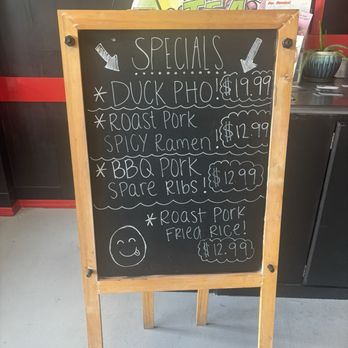 SPECIALS
* DUCK PHO! $19.99
* ROAST PORK
SPICY RAMEN! $12.99
* BBQ PORK
SPARE RIBS! $12.99
* ROAST PORK
FRIED RICE!
$12.99